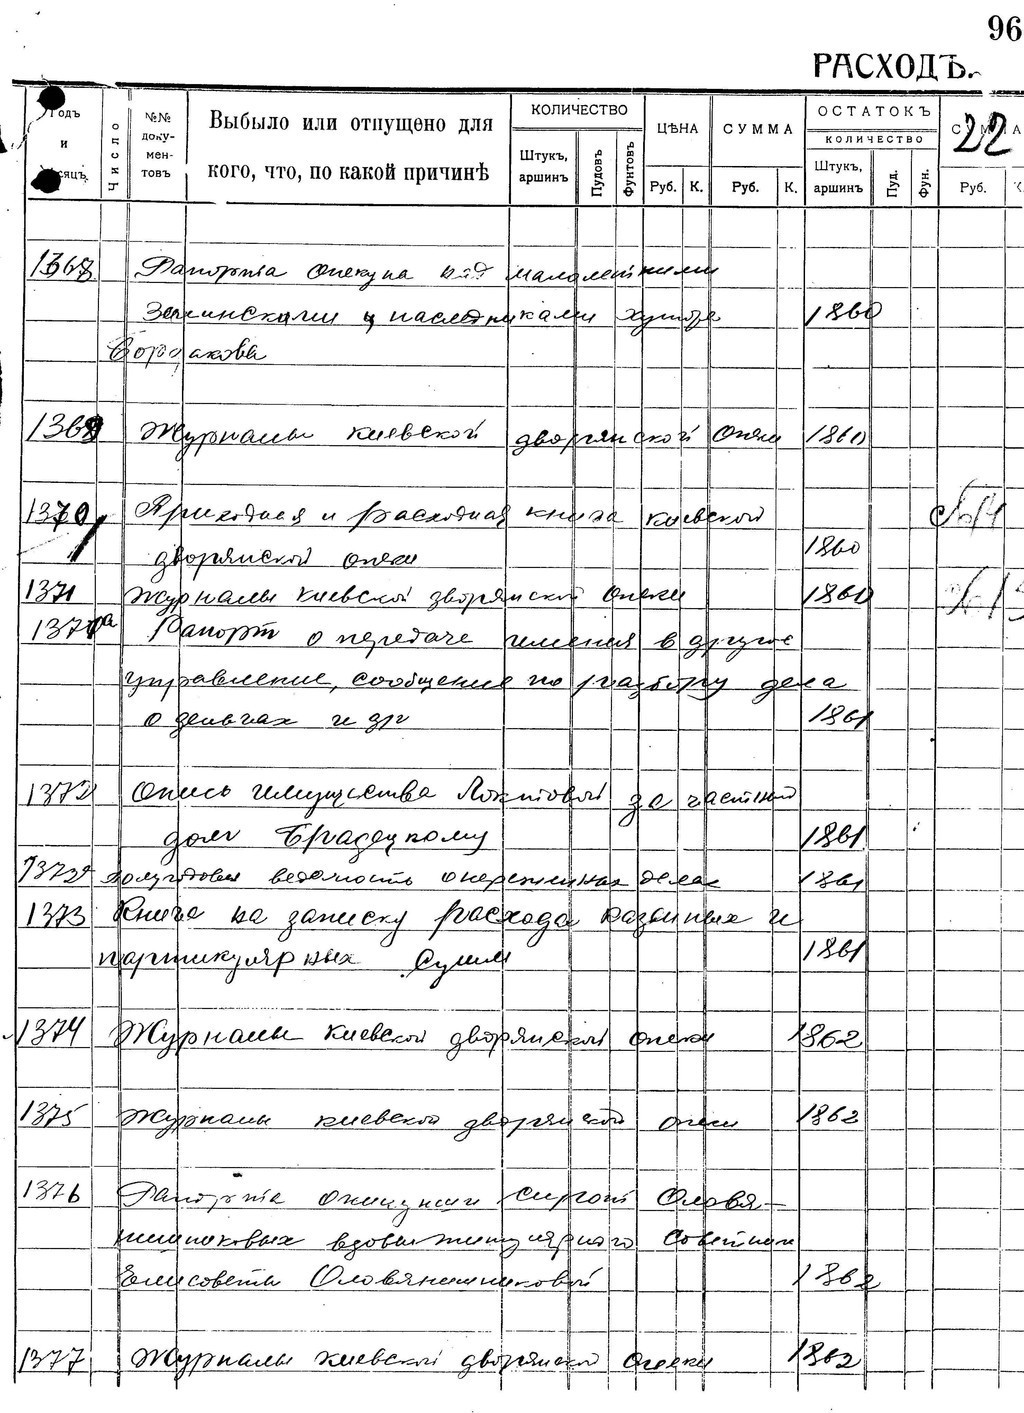 96
РАСХОДЪ.
Годъ и сяцъ.
Число
№№ доку-мен-товъ
Выбыло или отпущено для
кого, что, по какой причинѣ
КОЛИЧЕСТВО
Штукъ, аршинъ
Пудовъ
Фунтовъ
ЦѢНА
Руб. К.
СУММА
Руб. К.
ОСТАТОКЪ
КОЛИЧЕСТВО
Штукъ, аршинъ
Пуд.
Фун.
22
Руб. К.
1368 Рапорта опекуна над малолетними
наследниками хутора 1860
1369 Журналы киевской дворянской опеки 1860
1370 Приходная и расходная книга киевской
дворянской опеки 1860
1371 Журналы киевской дворянской опеки 1860
1371а Рапорт о передаче имения в другое
управление, сообщение по разбору дела
о деньгах и др 1861
1372 Опись имущества Локтовой за частный
долг 1861
1372а Полугодовая ведомость о нерешенных делах 1861
1373 Книга на записку расхода казенных и
партикулярных сумм 1861
1374 Журналы киевской дворянской опеки 1862
1375 Журналы киевской дворянской опеки 1862
1376 Рапорта опекунши сирот Оловя-
нишниковых вдовы титулярного советник
Елисоветы Оловянишниковой 1862
1377 Журналы киевской дворянской опеки 1862